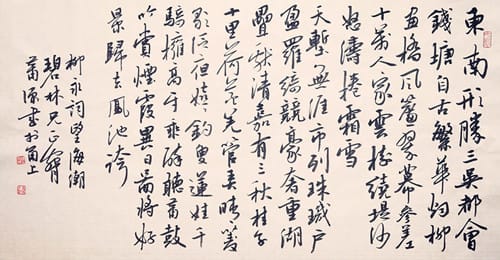 東南形勝三吳都會
錢塘自古繁華烟柳
畫橋風簾翠幕參差
十萬人家雲樹繞堤沙
怒濤捲霜雪
天塹無涯市列珠璣戶
盈羅綺競豪奢重湖
疊巘清嘉有三秋桂子
十里荷花羌管弄晴菱
歌泛夜嬉々釣叟蓮娃千
騎擁高牙乘醉聽簫鼓
吟賞煙霞異日圖將好
景歸去鳳池誇
柳永詞望海潮
碧林兄正
源書於上